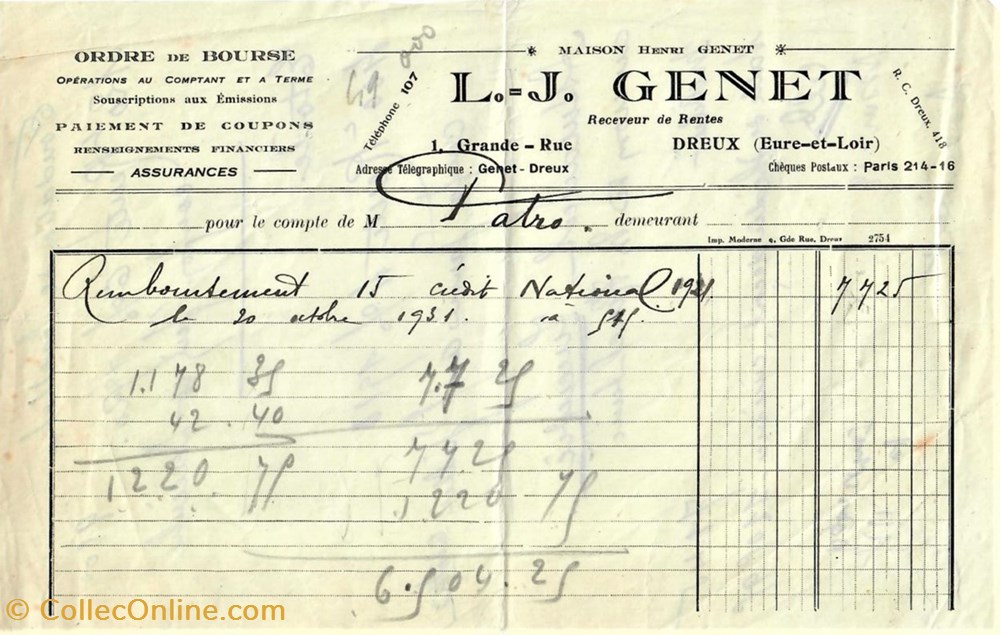 ORDRE DE BOURSE
OPÉRATIONS AU COMPTANT ET A TERME
Souscriptions aux Émissions
PAIEMENT DE COUPONS
RENSEIGNEMENTS FINANCIERS
ASSURANCES
MAISON HENRI GENET
L.=J. GENET
Receveur de Rentes
Téléphone 107
R. C. Dreux, 418
1, Grande-Rue DREUX (Eure-et-Loir)
Adresse Télegraphique : Genet-Dreux Chèques Postaux : Paris 214-16
pour le compte de M Patro. demeurant
Imp. Moderne 9, Gde Rue, Dreux 2754
Remboursement 15 crédit National 1921 7725
le 20 octobre 1931. a 515.
1.178 35 7.7 25
42.40
1220.75 7725
1220 75
6.504.25
© CollecOnline.com